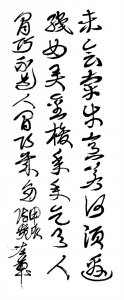 未会牵牛意若何须邀
织女弄金梭年年乞与人
间巧不道人间巧多
甲辰